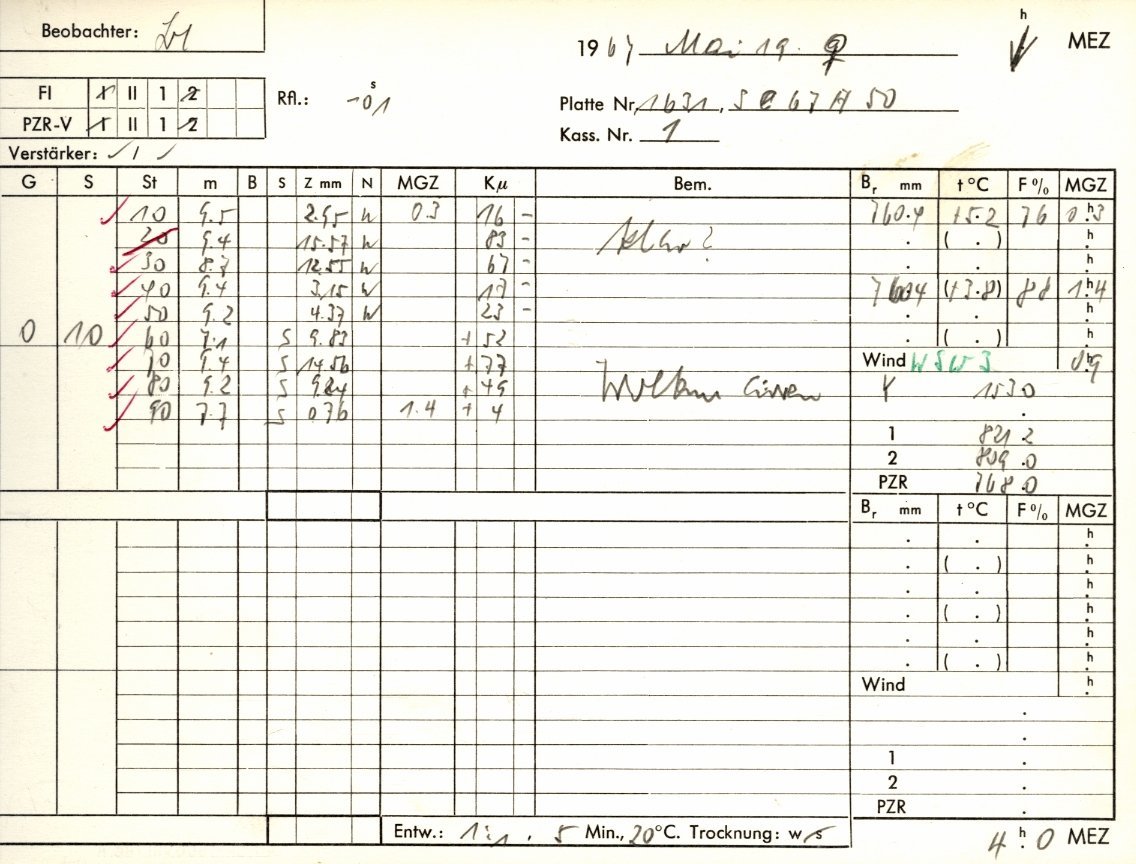 Beobachter:
1967 Mai 19. ♀ h MEZ
FI I II 1 2
Rfl.: -0s.01
Platte Nr. 1631, S C 67 A 50
PZR-V I II 1 2
Kass. Nr. 1
Verstärker: / 1 /
G S St m B S Z mm N MGZ Kμ Bem. Br mm t °C F % MGZ
10 9.5 2.95 W 0.3 16 - 760.4 +5.2 76 0h.3
20 9.4 15.57 W 83 - klar? . ( . ) h.
30 8.7 12.55 W 67 - . . h.
40 9.4 3.15 W 17 - 760.4 (+3.8) 88 1h.4
50 9.2 4.37 W 23 - . . h.
0 10 60 7.1 S 9.83 + 52 . ( . ) h.
70 9.4 S 14.56 + 77 Wind WSW 3 0h.9
80 9.2 S 9.24 + 49 Wolken Cirren 153 0
90 7.7 S 0.76 1.4 + 4 .
1 821.2
2 809.0
PZR 768.0
Br mm t °C F % MGZ
. . h.
. ( . ) h.
. . h.
. ( . ) h.
. . h.
. ( . ) h.
Wind h.
.
.
1 .
2 .
PZR .
Entw.: 1:1, 5 Min., 20°C. Trocknung: w s
4h.0 MEZ